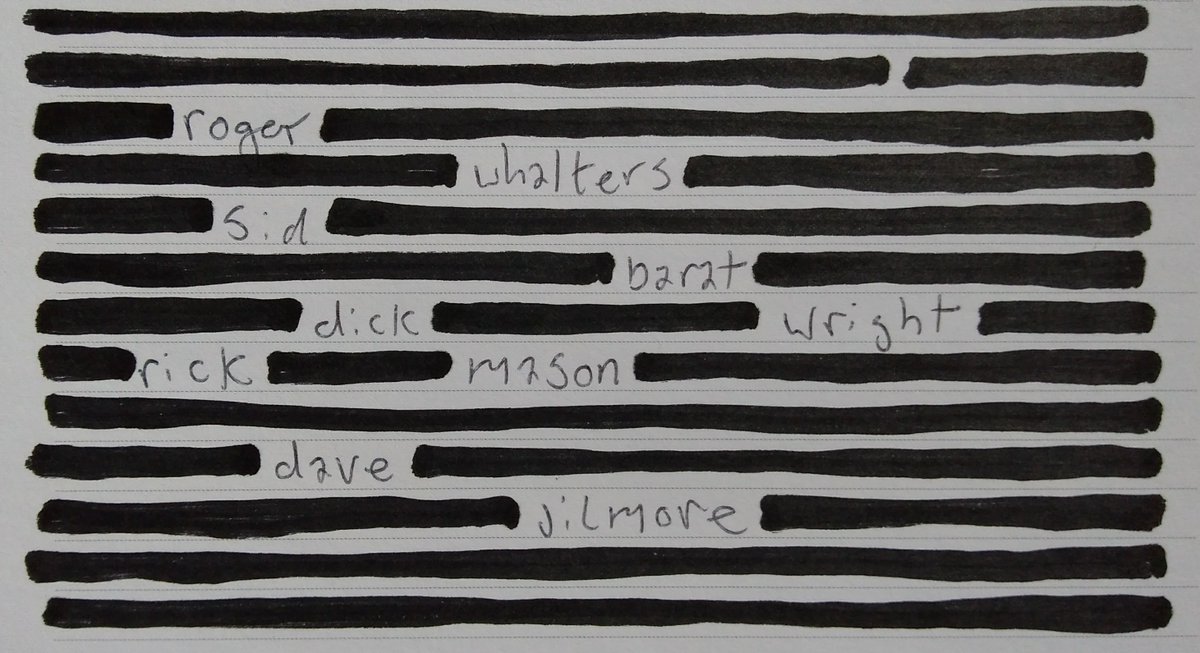 roger
whalters
sid
barat
dick wright
rick mason
dave
jilmore